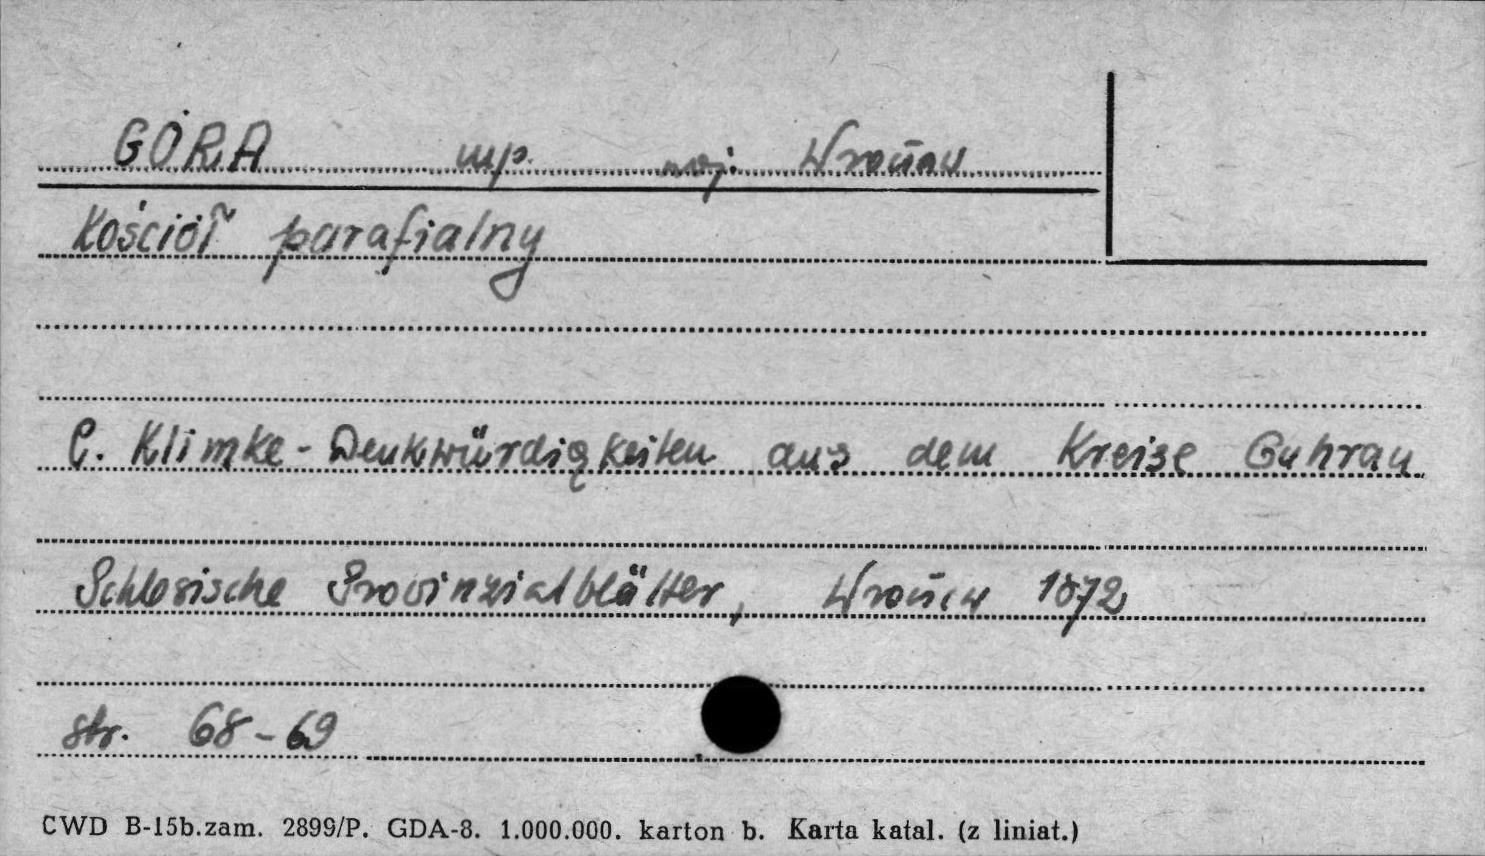 GÓRA mp. woj. Wrocław
Kościół parafialny
C. Klimke - Denkwürdigkeiten aus dem Kreise Guhrau
Schlesische Provinzialblätter, Wrocław 1872
str. 68-69
CWD B-15b.zam. 2899/P. GDA-8. 1.000.000. karton b. Karta katal. (z liniat.)